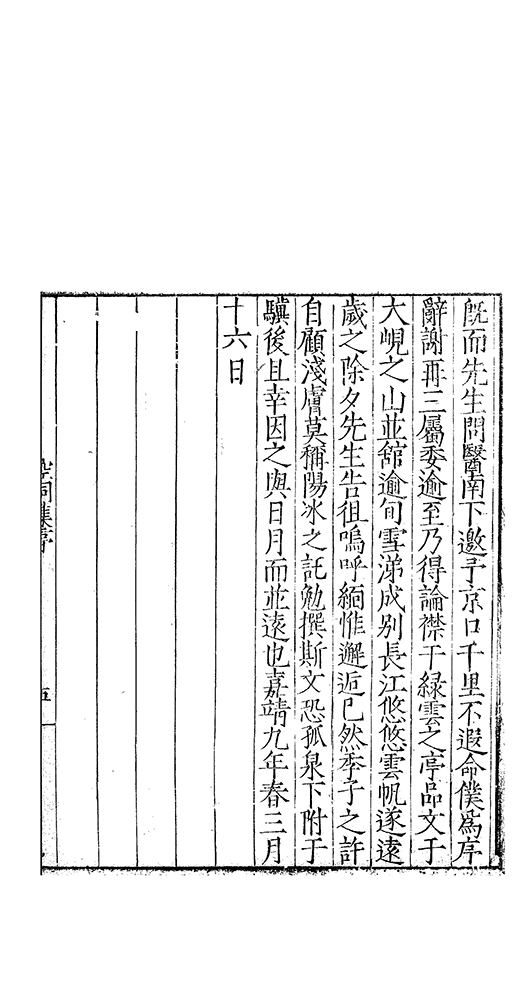 旣而先生問醫南下邀予京口千里不遐命僕爲序
辭謝再三屬委逾至乃得論襟于綠雲之亭品文于
大峴之山並舘逾旬雪涕成别長江悠悠雲帆遂遠
歲之除夕先生告徂嗚呼緬惟邂逅已然季子之許
自顧淺膚莫稱陽冰之託勉撰斯文恐孤泉下附于
驥後且幸因之與日月而並遠也嘉靖九年春三月
十六日
空同集序
五